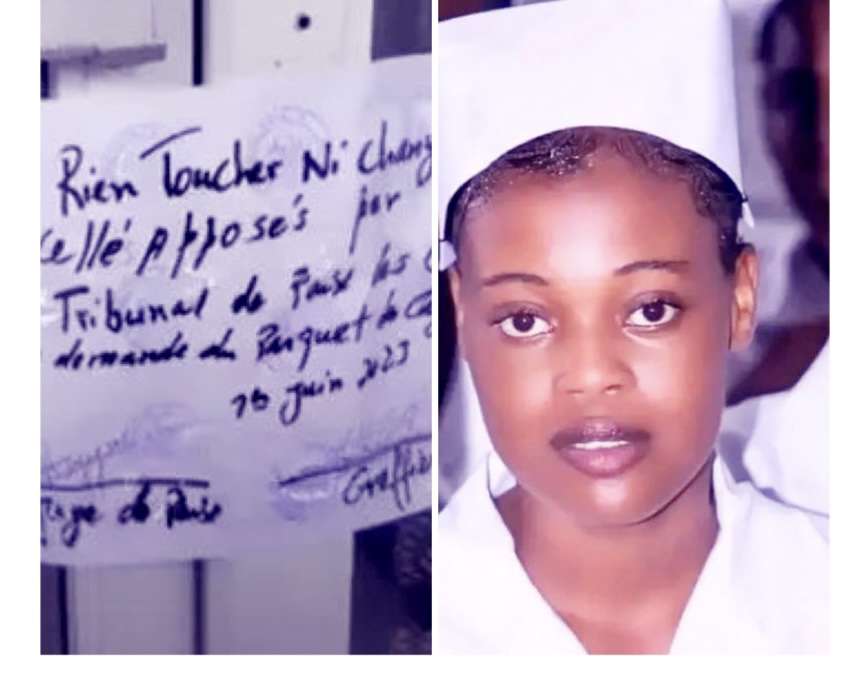 Rien Toucher Ni
cellé Apposés par
Tribunal de Paix les
demande du Parquet de
juin 2023
Juge de Paix
Greffier